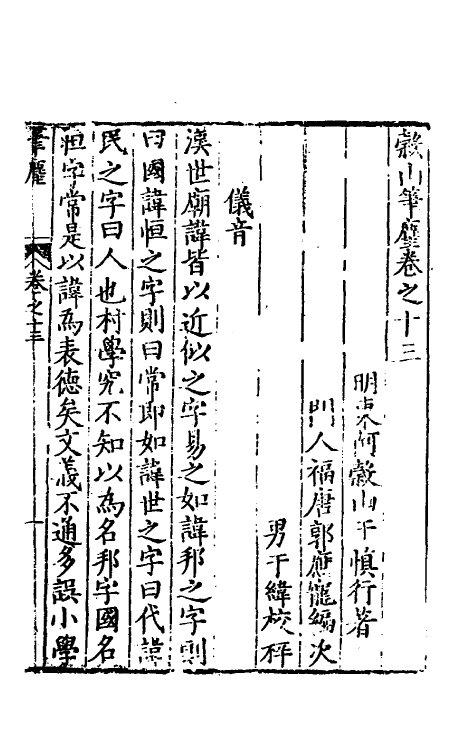 穀山筆麈卷之十三
明東阿穀山于慎行著
門人福唐郭應寵編次
男于緯校梓
儀音
漢世廟諱皆以近似之字易之如諱邦之字則
曰國諱恒之字則曰常即如諱世之字曰代諱
民之字曰人也村學究不知以為名邦字國名
恒字常是以諱為表德矣文義不通多誤小學
筆麈
卷之十三
一